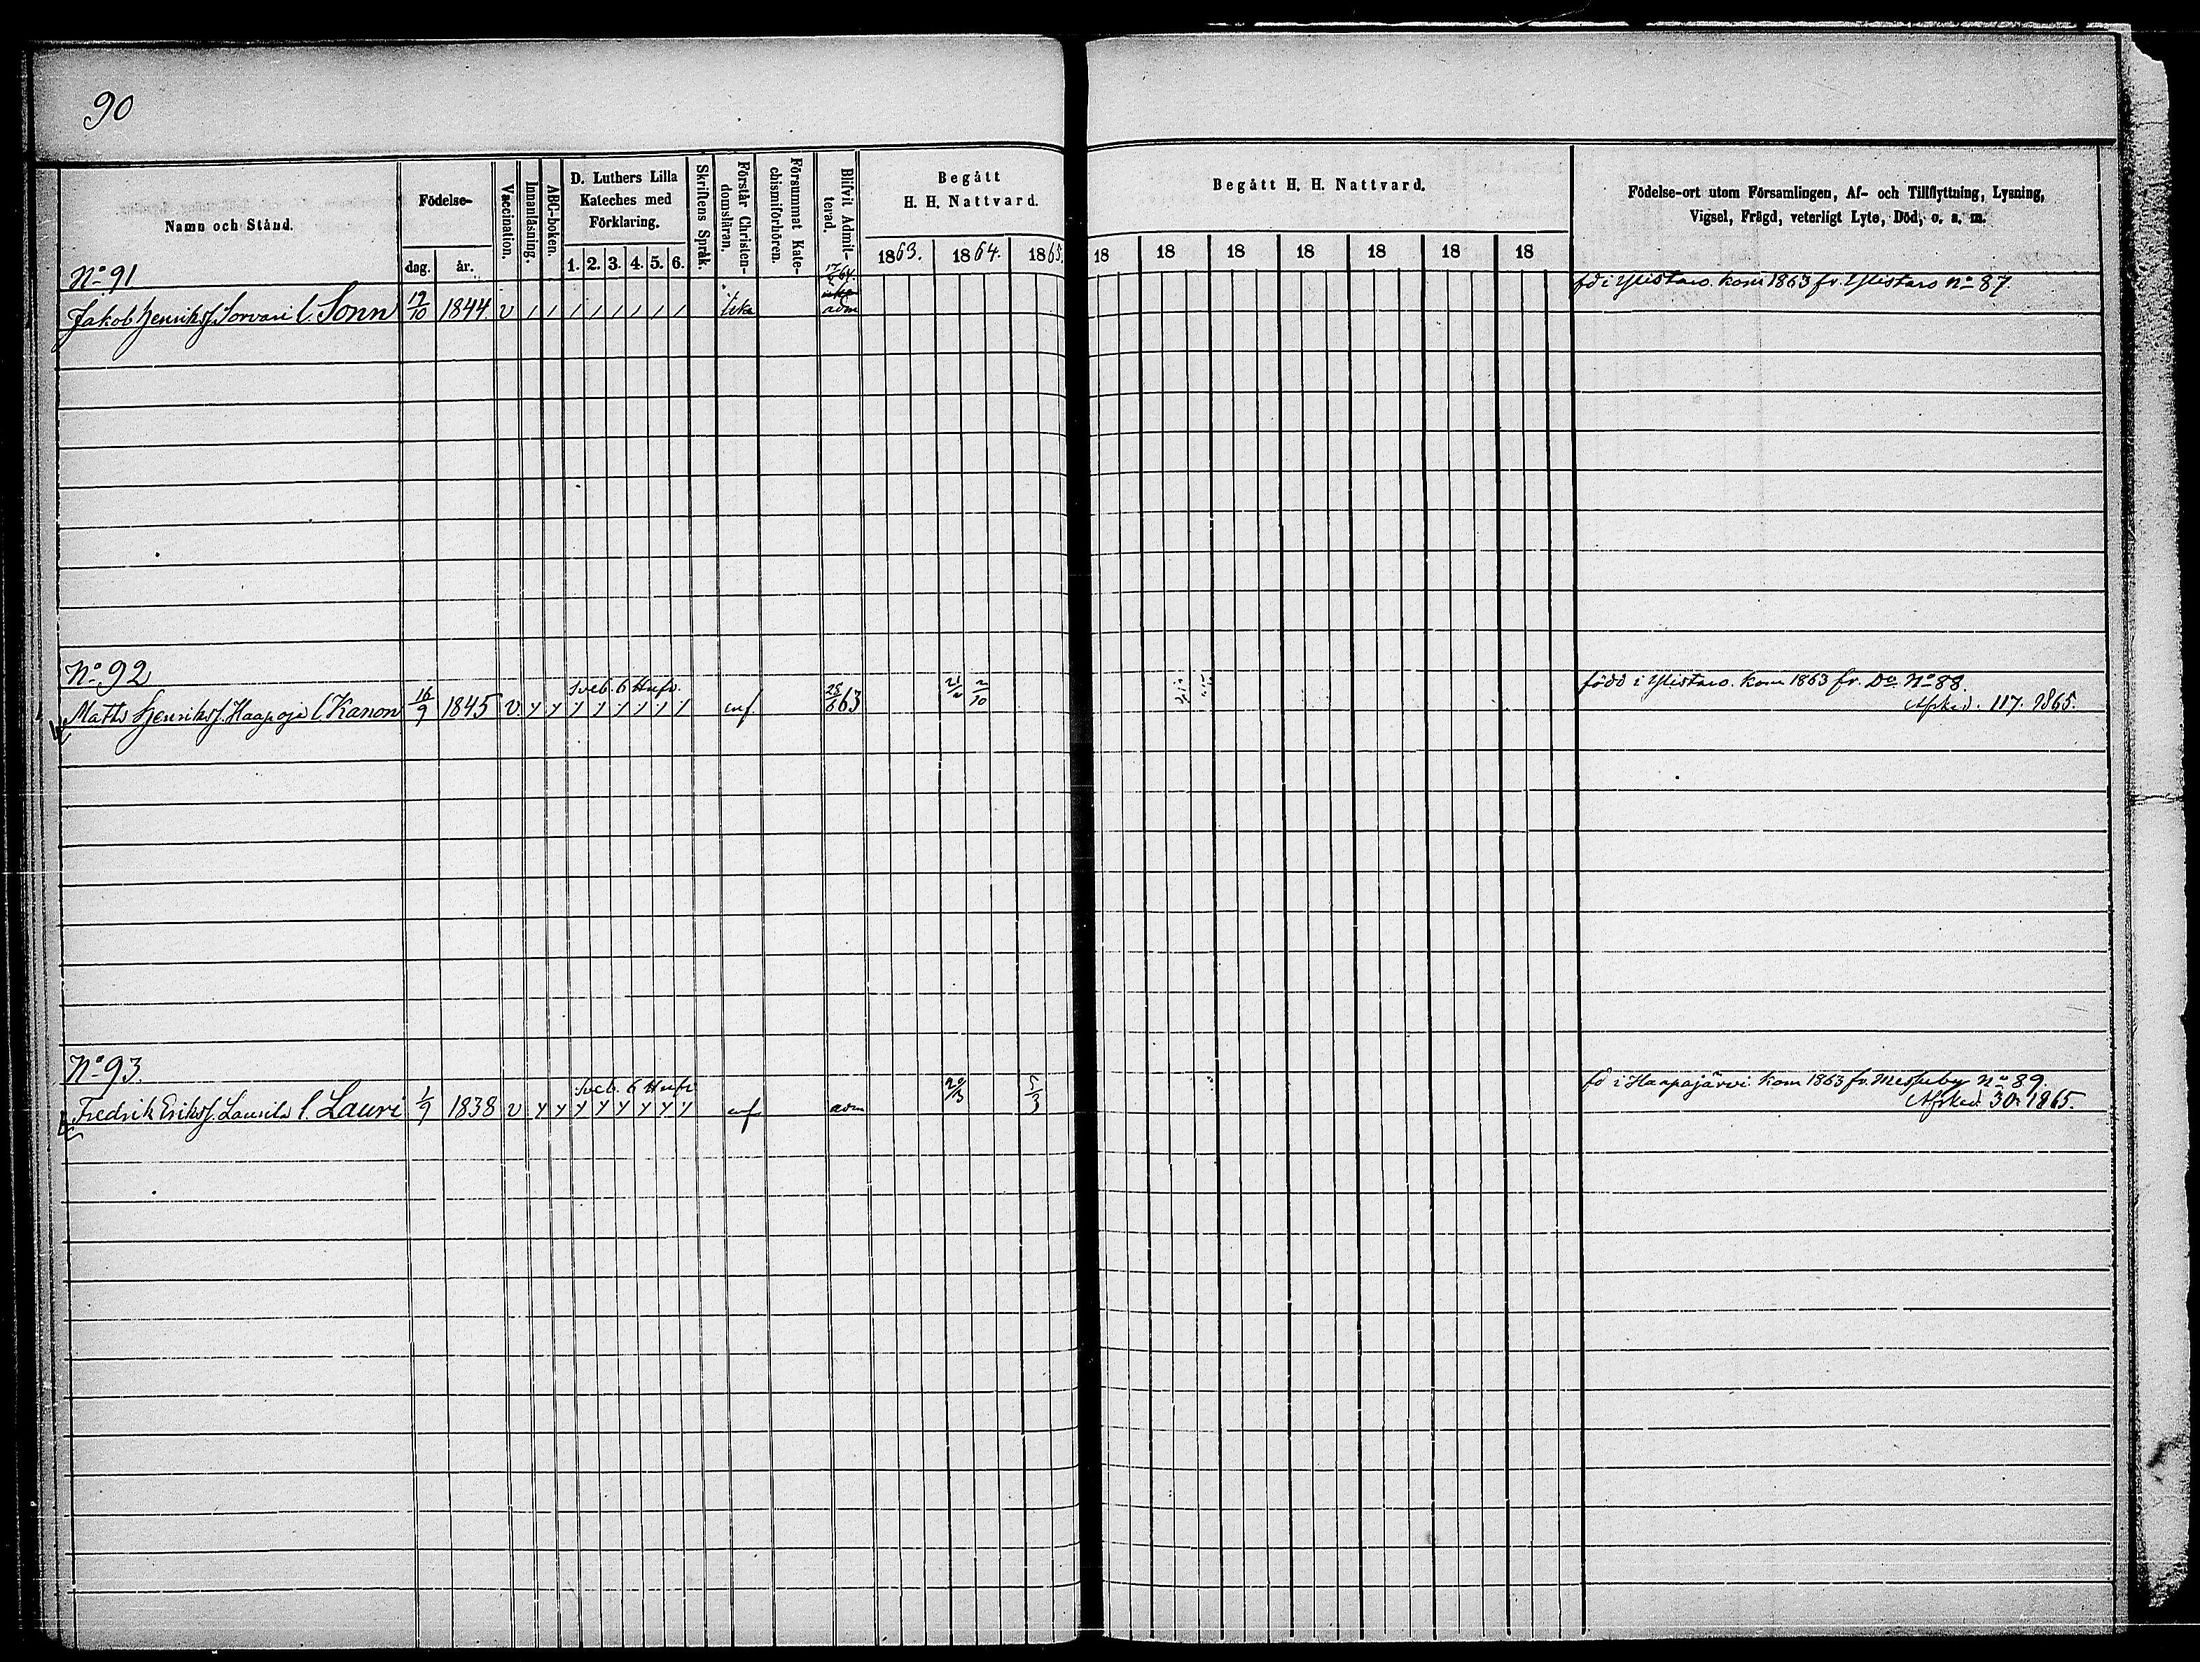 90
Namn och Stånd.
Födelse-
dag.
år.
Vaccination.
Innanläsning.
ABC-boken.
D. Luthers Lilla
Kateches med
Förklaring.
1. 2. 3. 4. 5. 6.
Skriftens Språk.
Förstår Christen-
domsläran.
Försummat Kate-
chismiförhören.
Blifvit Admit-
terad.
Begått
H. H. Nattvard.
1863. 1864. 1865.
Begått H. H. Nattvard.
18 18 18 18 18 18 18
Födelse-ort utom Församlingen, Af- och Tillflyttning, Lysning,
Vigsel, Frägd, veterligt Lyte, Död, o. s. m.
No 91
fd i Ylistaro. kom 1863 fr. Ylistaro No 87
Jakob Henriksf. Sorvari l. Sonn 19/10 1844 v / / / / / / / / adm
No 92
Sveb. 6 Hufv.
född i Ylistaro. kom 1863 fr. Do No 88.
Matts Henriksf. Haapoja l. Kanon 16/9 1845 v y y y y y y y y 28/6 63 2/10
Afsked. 117. 1865.
No 93.
Sveb. 6 Hufv.
fd i Haapajärvi kom 1863 fr. Messuby No 89.
Fredrik Eriksf. Laurila l. Lauri 1/9 1838 v y y y y y y y y adm
Afsked. 30. 1865.